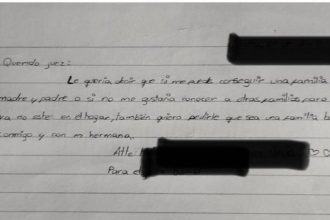 Querido juez:
Le quería decir que si me puede conseguir una familia
madre y padre o si no me gustaría conocer a otras familias para
ya no estar en el hogar, también quiero pedirle que sea una familia
conmigo y con mi hermana.
Atte:
Para el